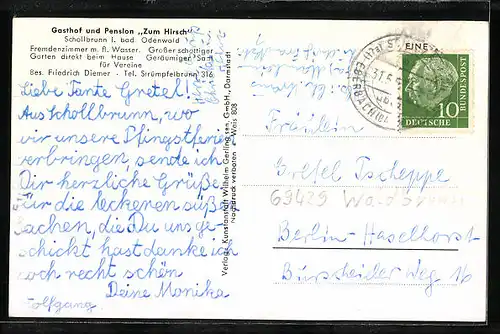 Gasthof und Pension „Zum Hirsch"
Schollbrunn i. bad. Odenwald
Fremdenzimmer m. fl. Wasser. Großer schattiger
Garten direkt beim Hause Geräumiger Saal
für Vereine
Bes. Friedrich Diemer - Tel. Strümpfelbrunn 316
Liebe Tante Gretel!
Aus Schollbrunn, wo
wir unsere Pfingstferien
verbringen, sende ich
Dir herzliche Grüße.
Für die leckeren süßen
Sachen, die Du uns ge-
schickt hast danke ich
noch recht schön
Deine Monika
Wolfgang
Verlag: Kunstanstalt Wilhelm Gerling GmbH., Darmstadt
Nachdruck verboten Weis 808
EINE
EBERBACH
DEUTSCHE BUNDESPOST
10
Fräulein
Gretel Tscheppe
69429
Berlin-Haselhorst
Burscheider Weg 16